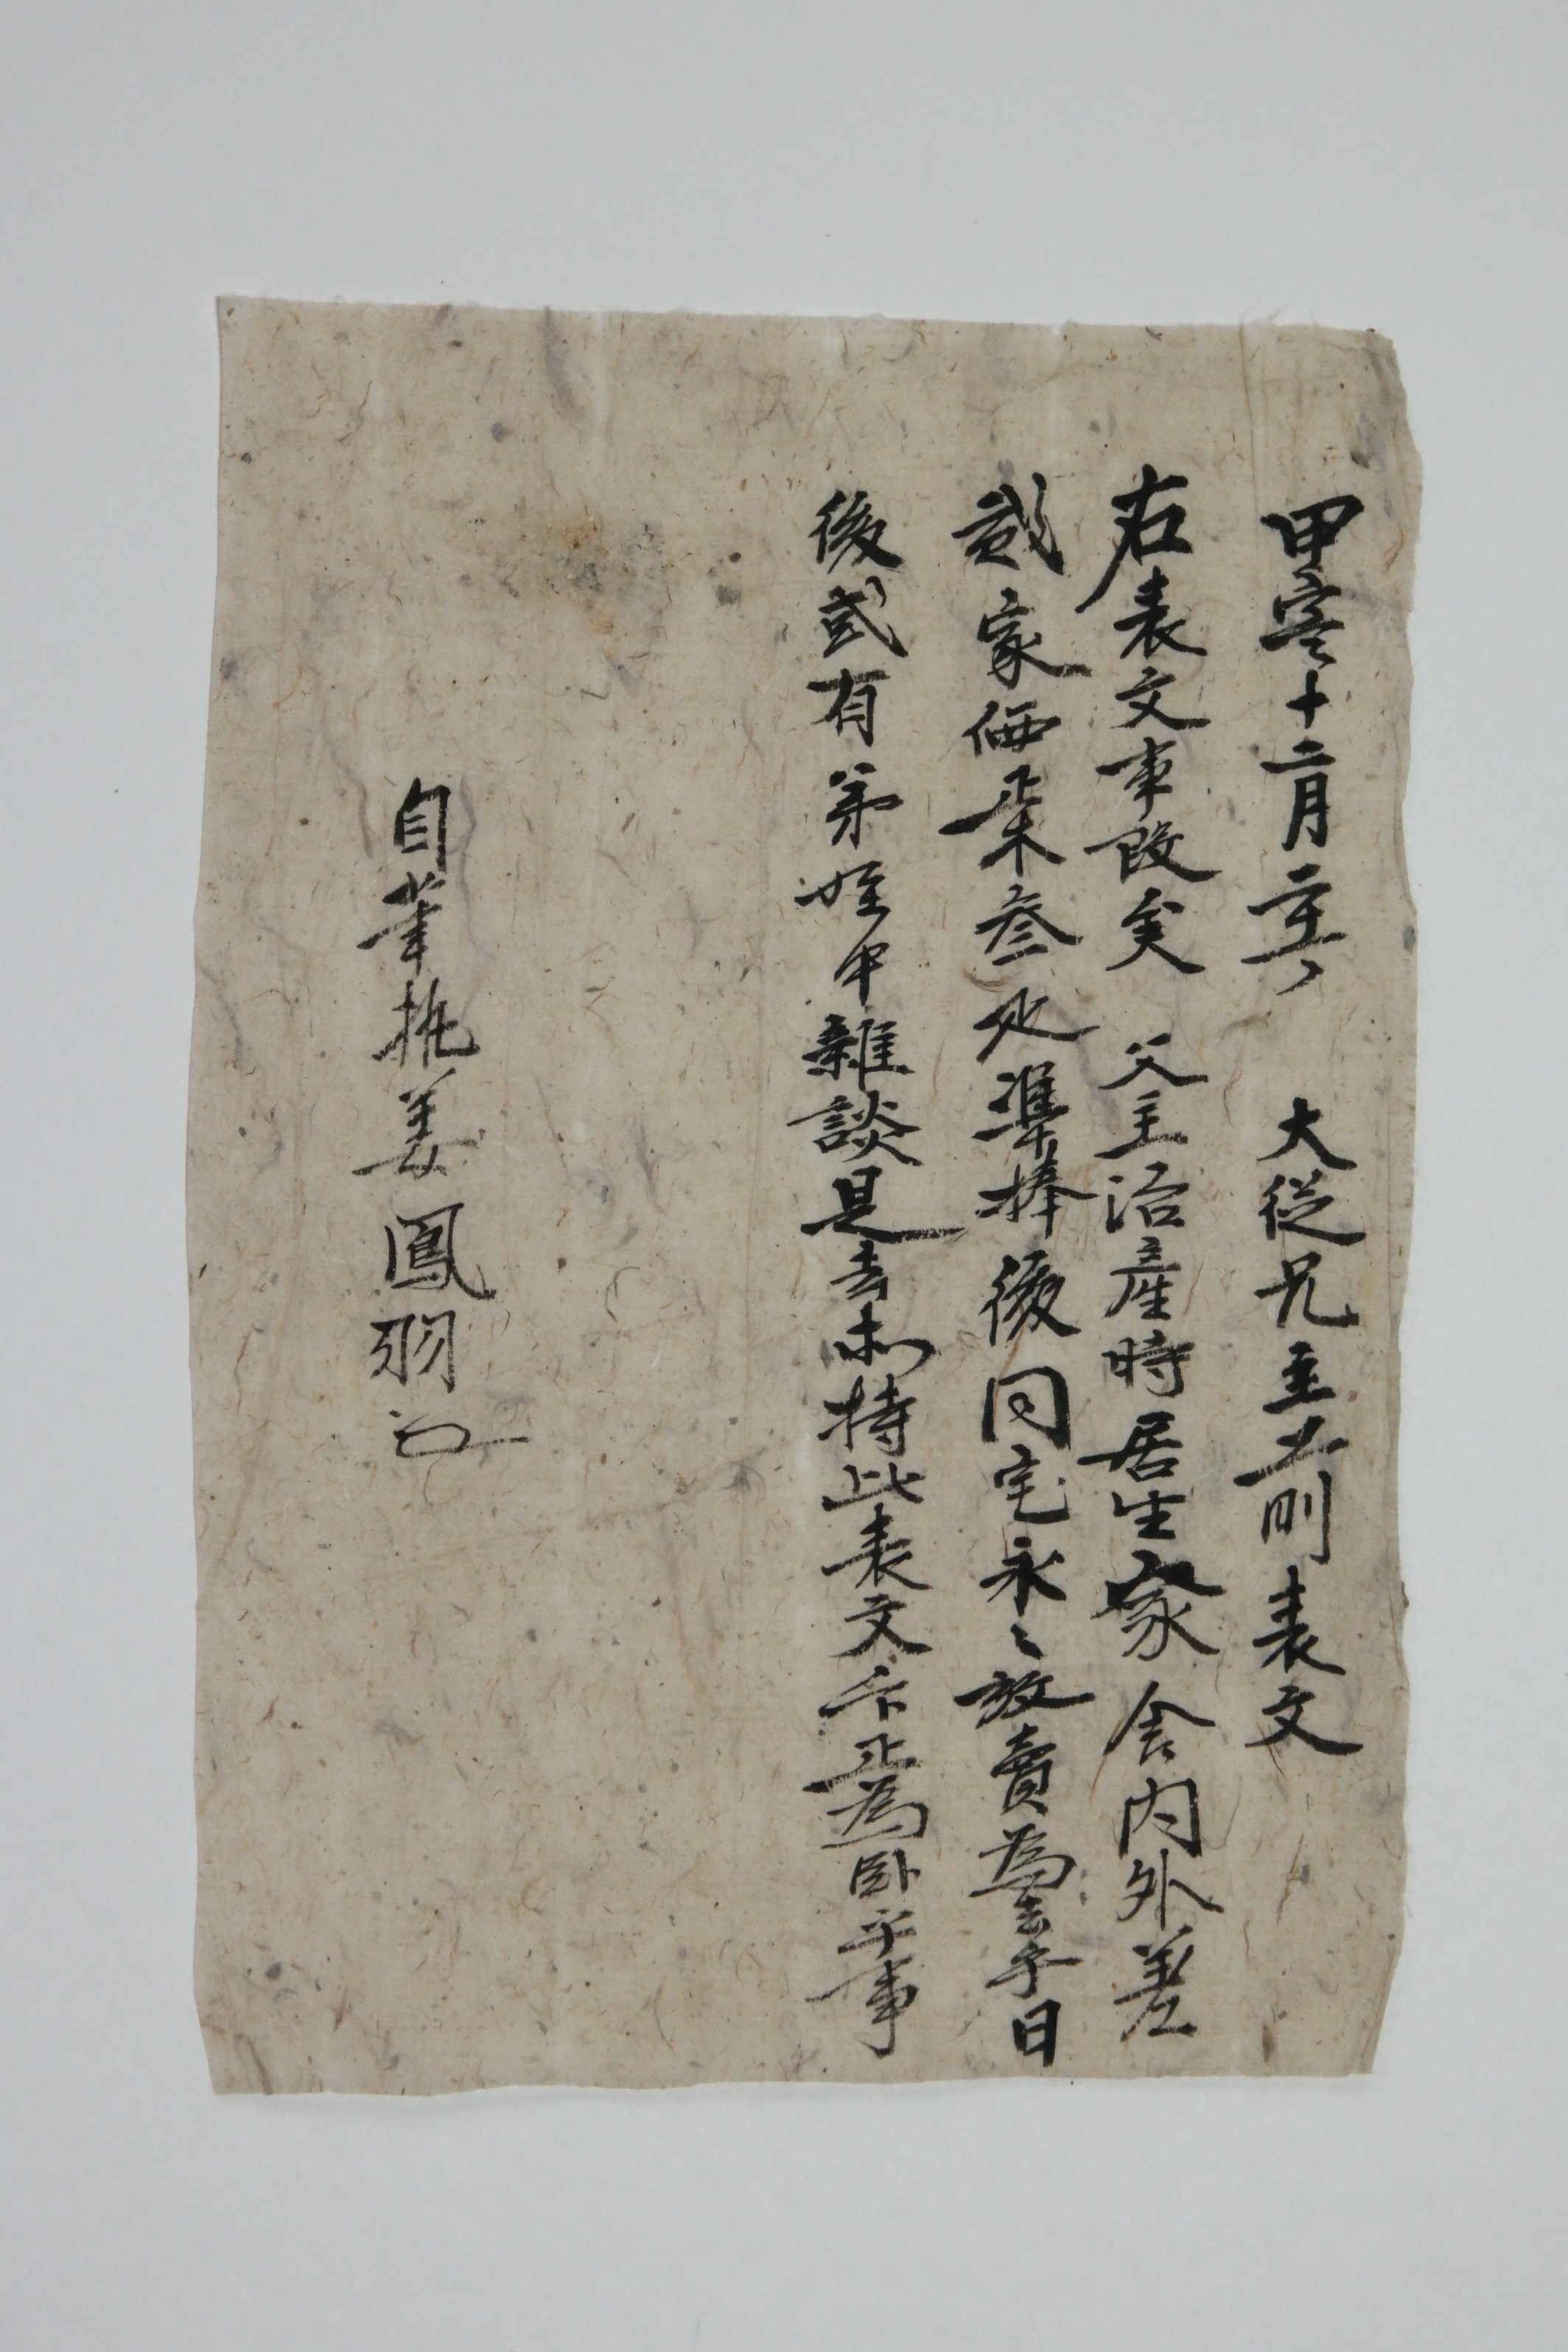 甲寅十二月二十六 大從兄主前表文
右表文事段矣 父主治産時居生家舍內外差
貳家価正木叄疋準捧後同宅永〻放賣爲去乎日
後或有弟姪中雜談是去等持此表文卞正爲臥乎事
自筆執姜鳳羽